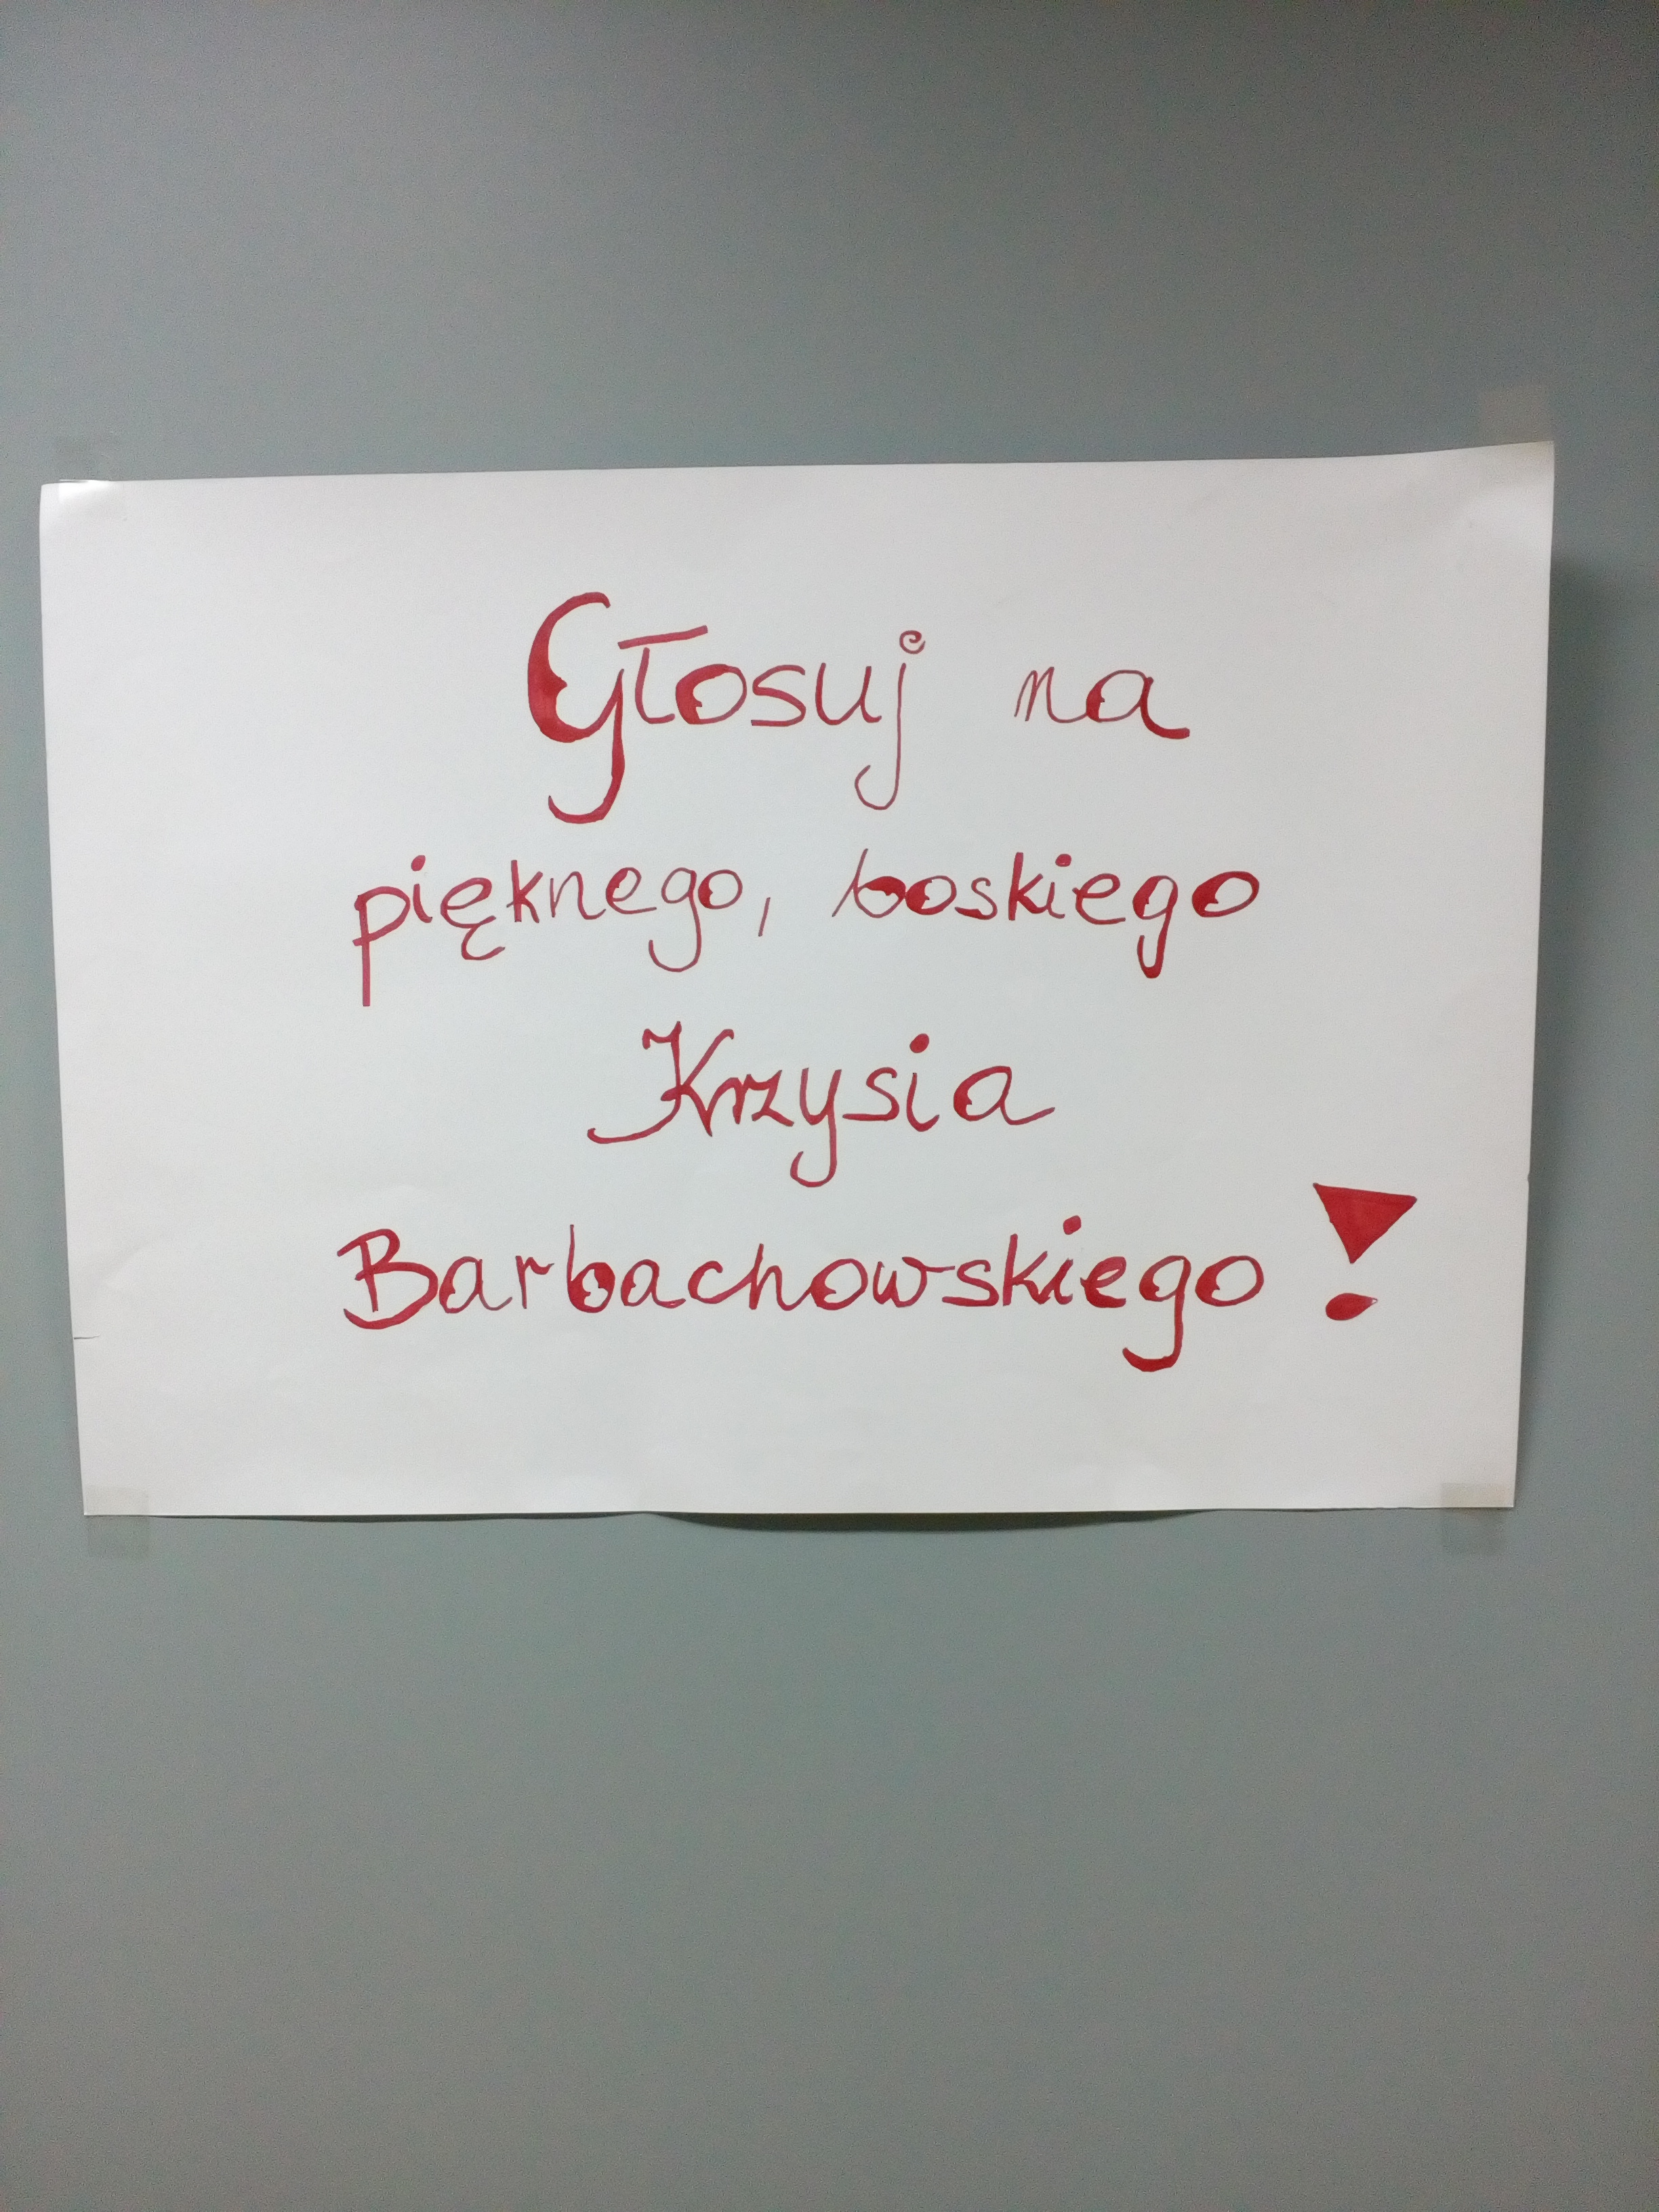 Głosuj na
pięknego, boskiego
Krzysia
Barbachowskiego!